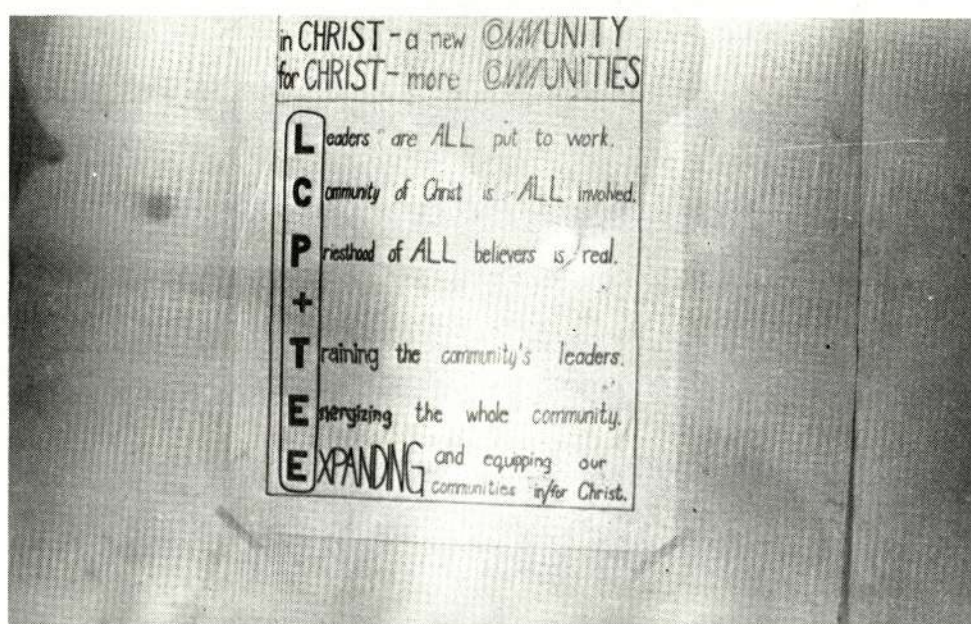 in CHRIST - a new COMMUNITY
for CHRIST - more COMMUNITIES
Leaders are ALL put to work.
Community of Christ is ALL involved.
Priesthood of ALL believers is real.
+
Training the community's leaders.
Energizing the whole community.
EXPANDING and equipping our
communities in/for Christ.